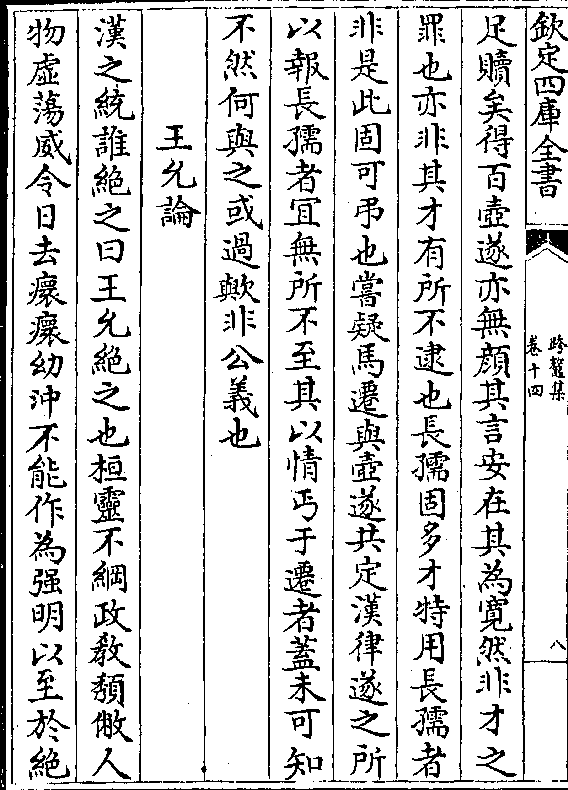 欽定四庫全書
跨鼇集
卷十四
八
足贖矣得百壺遂亦無顔其言安在其為寛然非才之
罪也亦非其才有所不逮也長孺固多才特用長孺者
非是此固可弔也嘗疑馬遷與壺遂共定漢律遂之所
以報長孺者宜無所不至其以情丐于遷者蓋未可知
不然何與之或過歟非公義也
王允論
漢之統誰絶之曰王允絶之也桓靈不綱政敎頽僘人
物虚蕩威令日去瓌瓌幼冲不能作為强明以至於絶